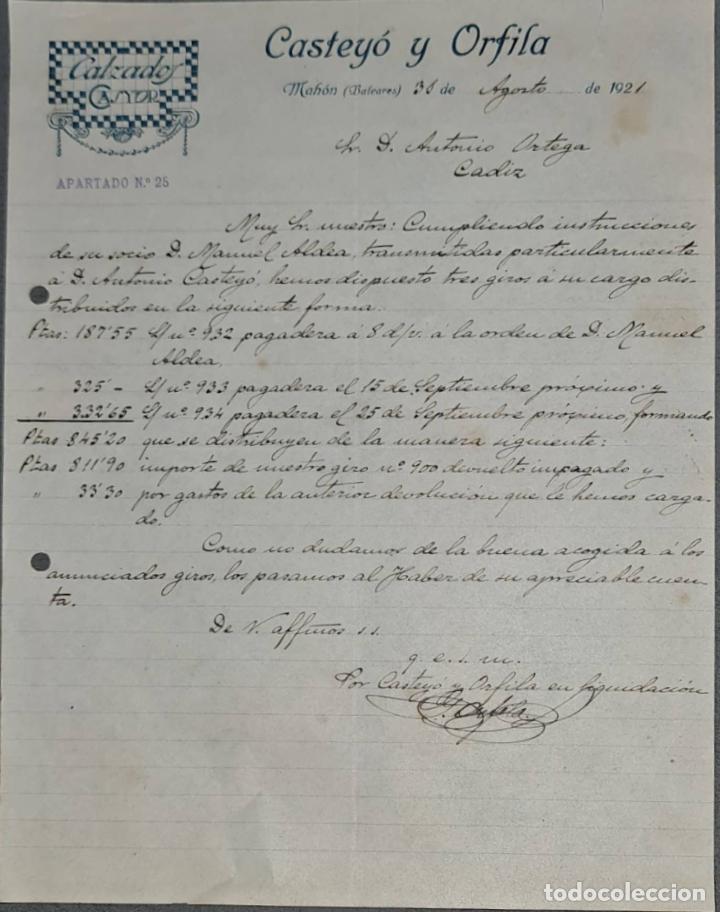 Calzados
CASTOR
APARTADO N.º 25
Casteyó y Orfila
Mahón (Baleares) 31 de Agosto de 1921
Sr. D. Antonio Ortega
Cadiz
Muy Sr. nuestro: Cumpliendo instrucciones
de su socio D. Manuel Aldea, transmitidas particularmente
á D. Antonio Casteyó, hemos dispuesto tres giros á su cargo dis-
tribuidos en la siguiente forma.
Ptas: 187'55 L/ nº 932 pagadera á 8 d/v. á la orden de D. Manuel
Aldea,
" 325'- L/ nº 933 pagadera el 15 de Septiembre próximo y
" 332'65 L/ nº 934 pagadera el 25 de Septiembre próximo, formando
Ptas 845'20 que se distribuyen de la manera siguiente:
Ptas 811'90 importe de nuestro giro nº 900 devuelto impagado y
" 33'30 por gastos de la anterior devolución que le hemos carga-
do.
Como no dudamos de la buena acogida á los
anunciados giros, los pasamos al Haber de su apreciable cuen-
ta.
De V. affmos s.s.
q. e. s. m.
Por Casteyó y Orfila en liquidación
Orfila
todocoleccion